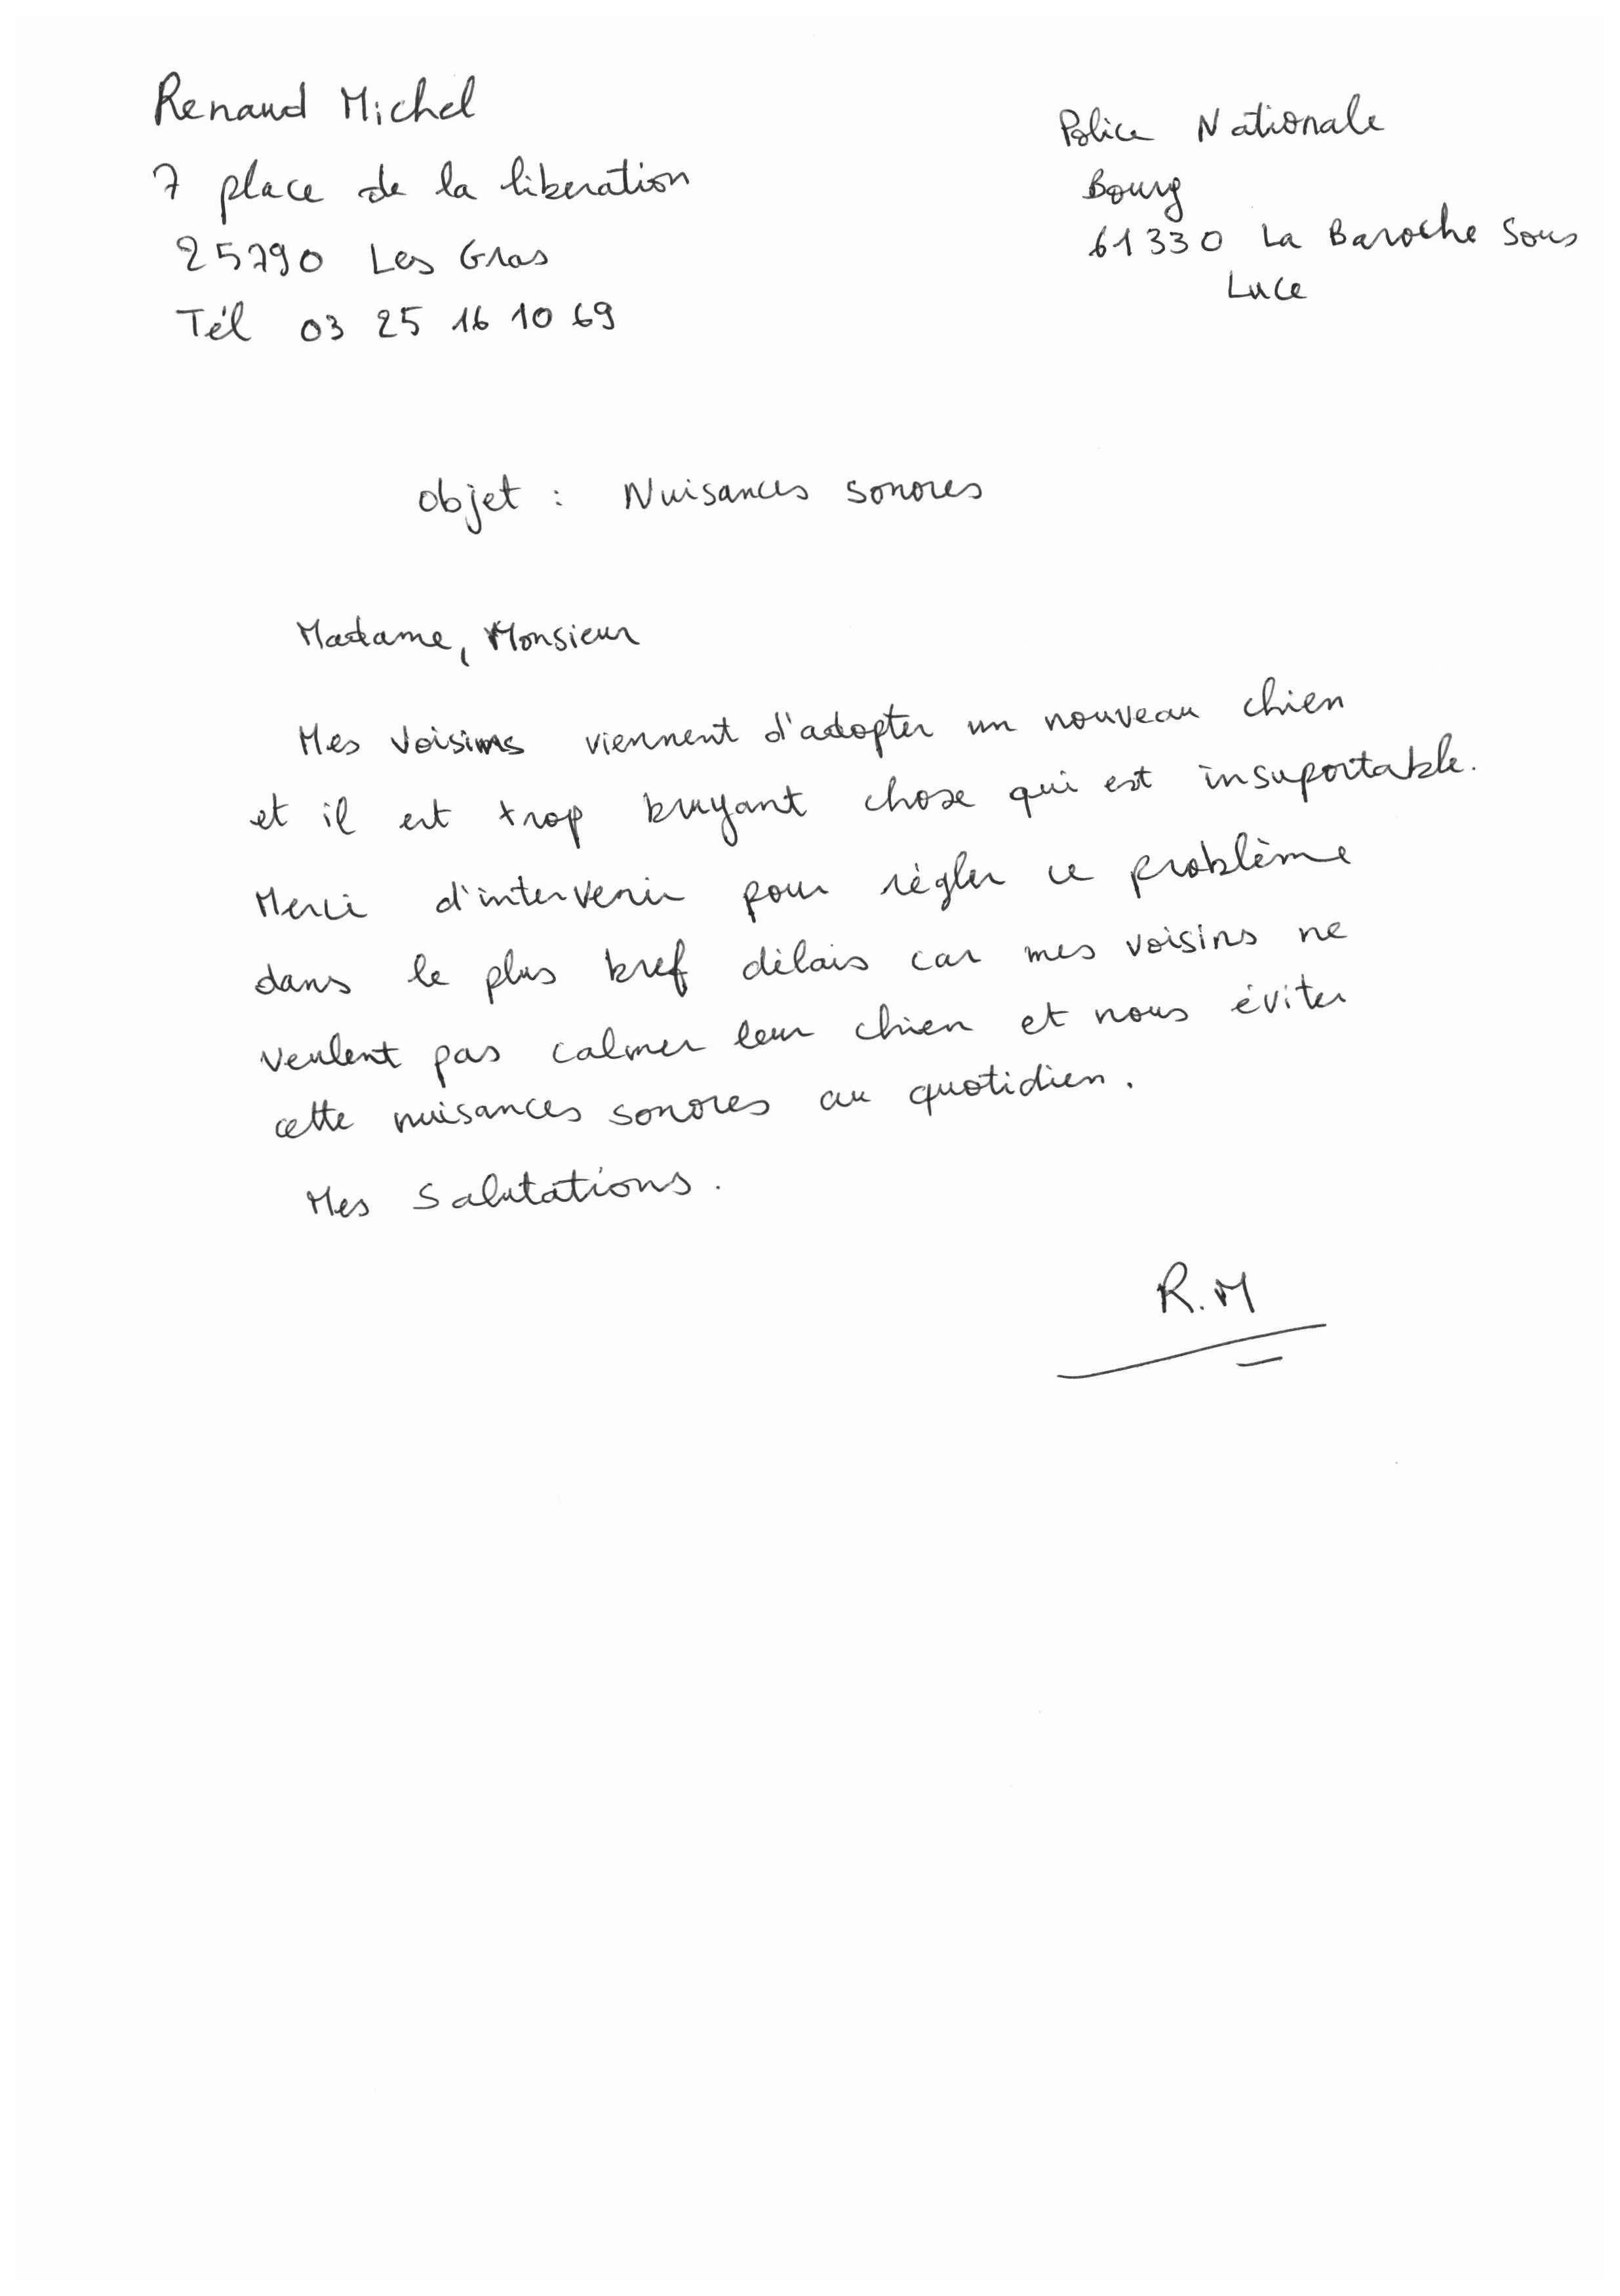 Renaud Michel
7 place de la liberation
25790 Les Gras
Tél 03 25 16 10 69
Police Nationale
Bourg
61330 La Baroche Sous
Luce
Objet : Nuisances sonores
Madame, Monsieur
Mes voisins viennent d'adopter un nouveau chien
et il est trop bruyant chose qui est insuportable.
Merci d'intervenir pour règler ce problème
dans le plus bref délais car mes voisins ne
veulent pas calmer leur chien et nous éviter
cette nuisances sonores au quotidien.
Mes Salutations.
R.M